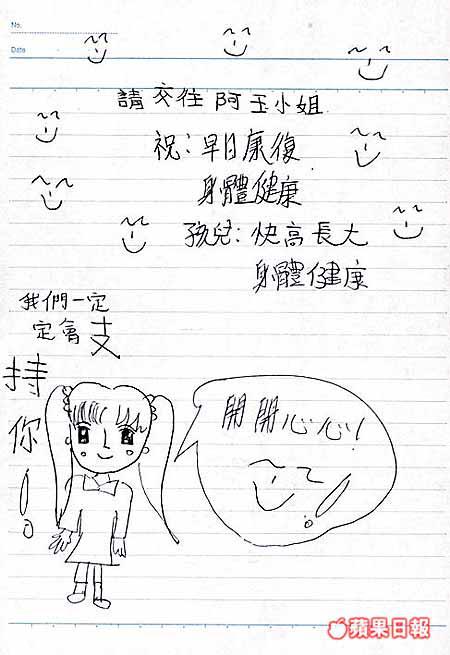 No.
Date
請交往阿玉小姐
祝:早日康復
身體健康
孩兒:快高長大
身體健康
我們一定
定會支
持
你!
開開心心!
蘋果日報